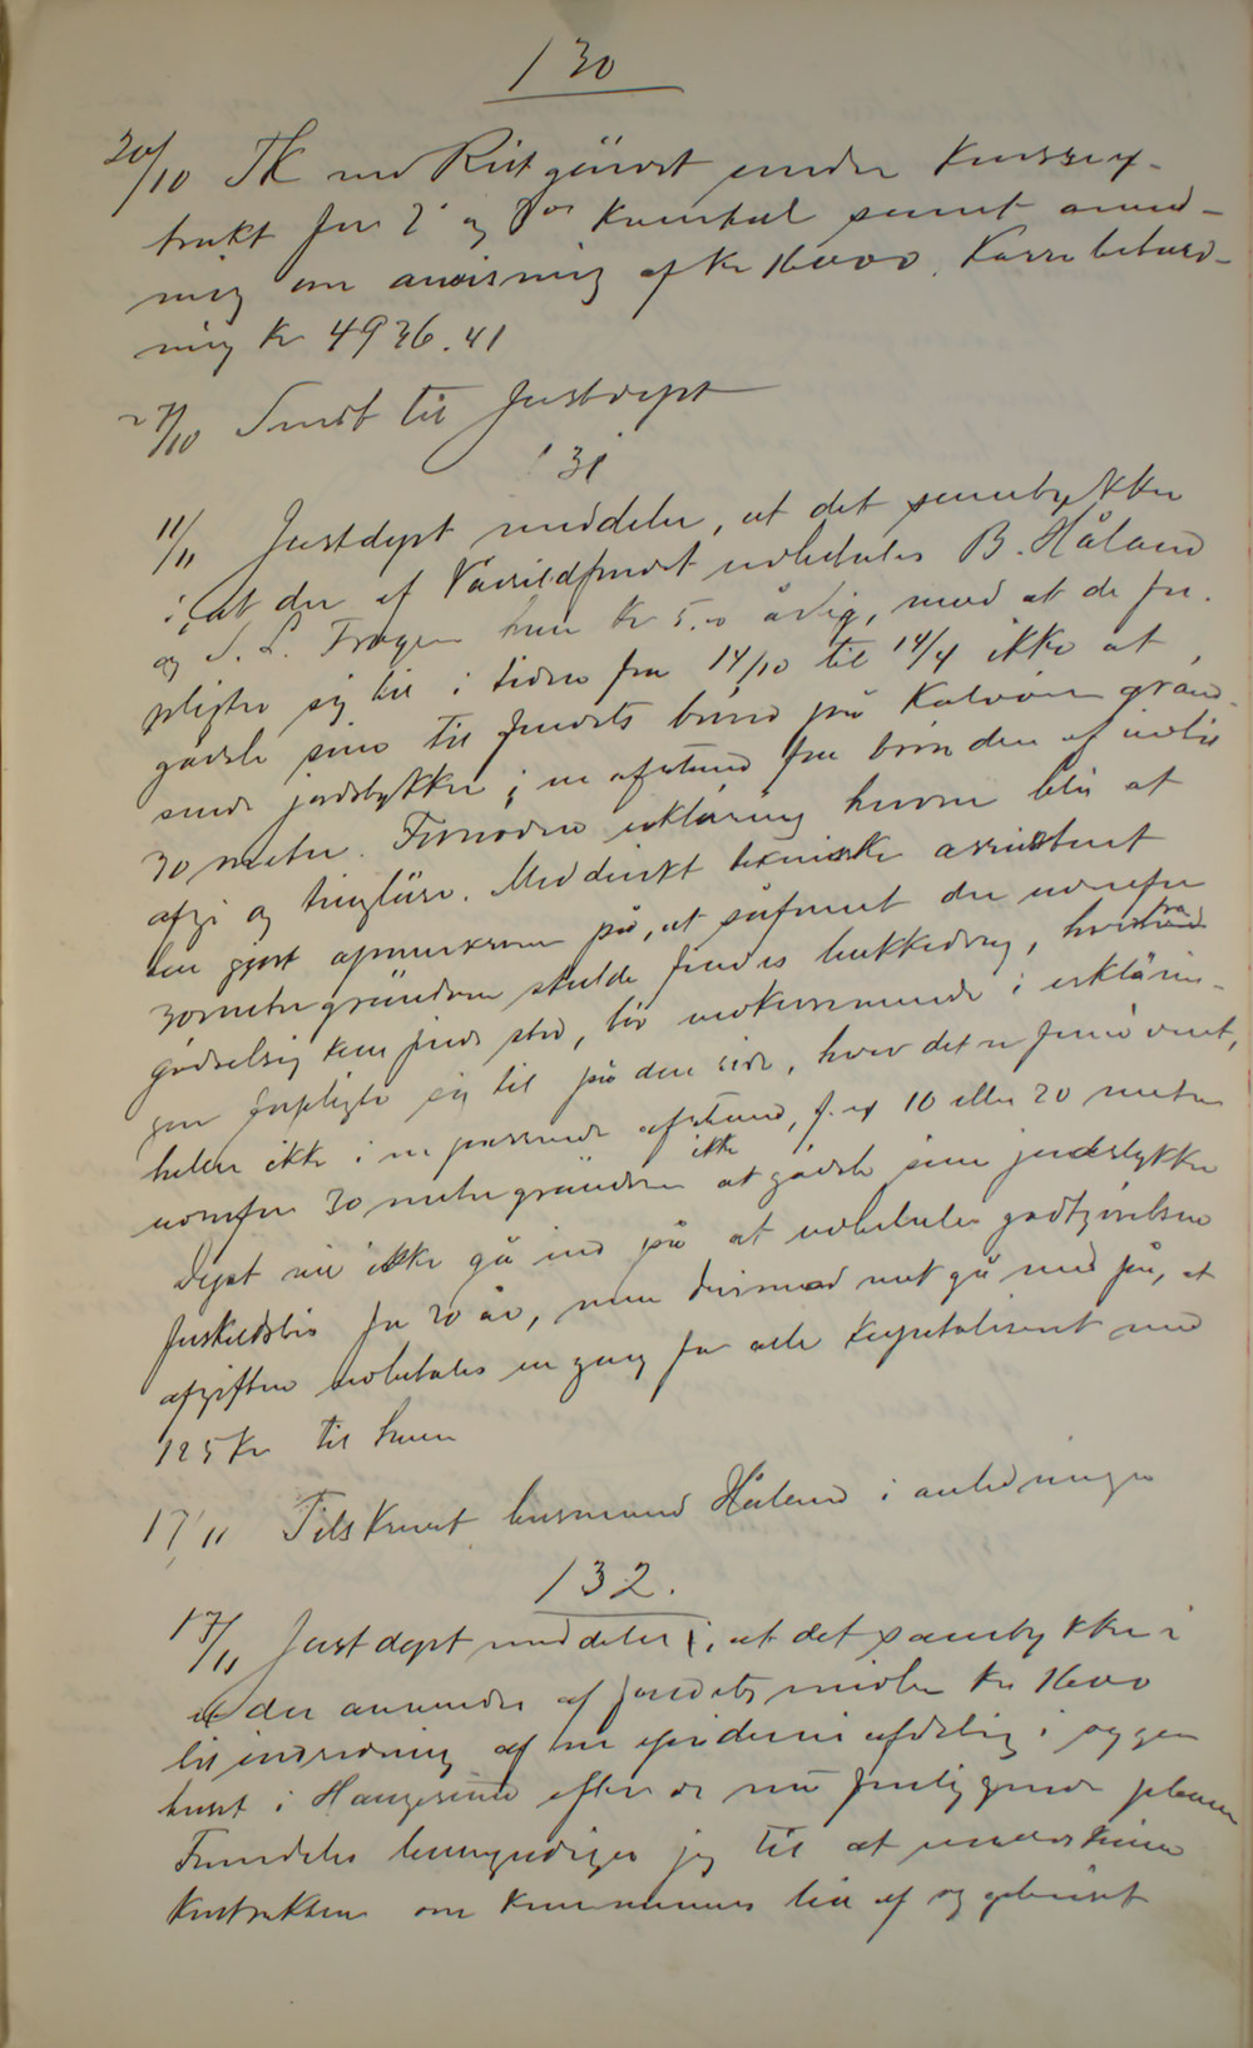 130
20/10 TK med Rist gienvst under kasseex-
trakt for 2 og 3die kvartal samt anmod-
ning om anvisning af kr 16000. Kassebehold-
ning kr 4936.41
27/10 Sendt til Justdept
131
11/11 Justdept meddeler, at det samtykker
i, at der af Vårsildfondet udbetales B. Håland
og S. L. Frogen hver kr 5.00 årlig, mod at de for-
pligter sig til i tiden fra 14/10 til 14/4 ikke at
gødsle sine til fondets brønd på Kalvøen græn-
sende jordstykker i en afstand fra brønden af indtil
30 meter. Fornøden erklæring herom blir at
afgi og tinglæse. Meddirekt tekniske assistent
har gjort opmerksom på, at såfremt der udenfor
30metergrændsen skulde findes bækkedrag, hvorfra
gødselsig kan finde sted, bør vedkommende i erklærin-
gen forpligte sig til på den side, hvor det er fornødent,
heller ikke i en passende afstand, f. ex 10 eller 20 meter
udenfor 30 metergrændsen ikke at gødsle sine jordstykker
Dept vil ikke gå ind på at udbetale godtgjørelsen
forskudsvis for 20 år, men derimod nok gå med på, at
afgiften udbetales en gang for alle kapitaliseret med
125 kr til hver
17/11 Tilskrevet husmand Håland i anledningen
132.
17/11 Justdept meddeler, at det samtykker i
at der anvendes af fondets midler kr 16000
til indredning af en epidemiafdeling i syge-
huset i Haugesund efter de nu foreliggende planer
Fremdeles bemyndiges jeg til at underskrive
kontrakten om kommunens leie af sygehuset